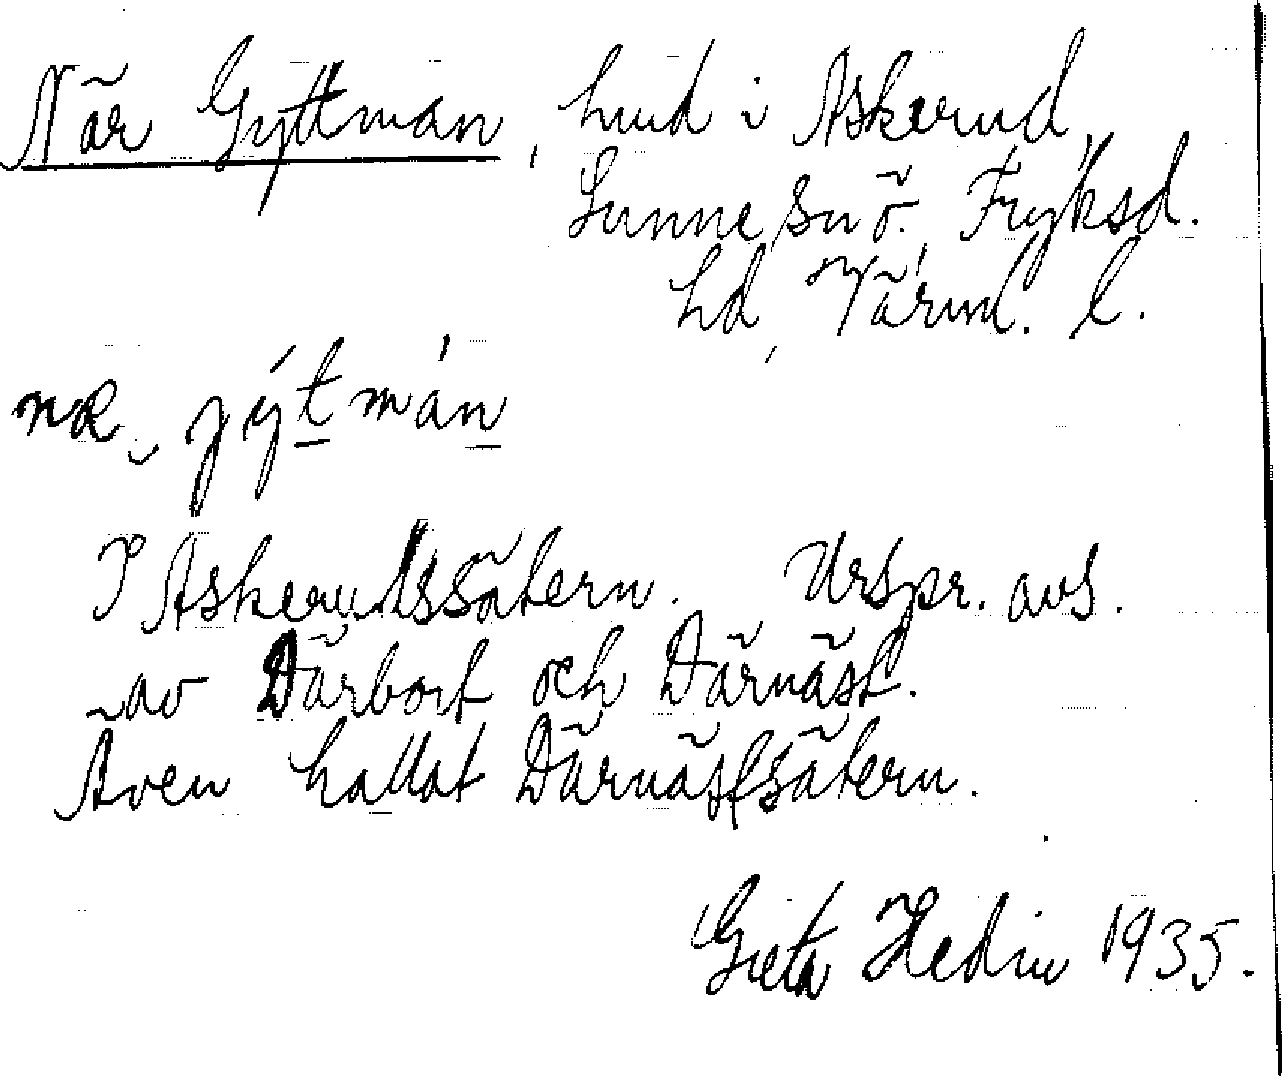 När Gyttman, hmd i Askerud,
Sunne sn ö. Fryksd.
hd, Värml. l.
næ gýtmán
I Askerudssätern. Urspr. avs.
av Därbort och Därnäst.
Även kallat Därnästsätern.
Greta Hedin 1935.